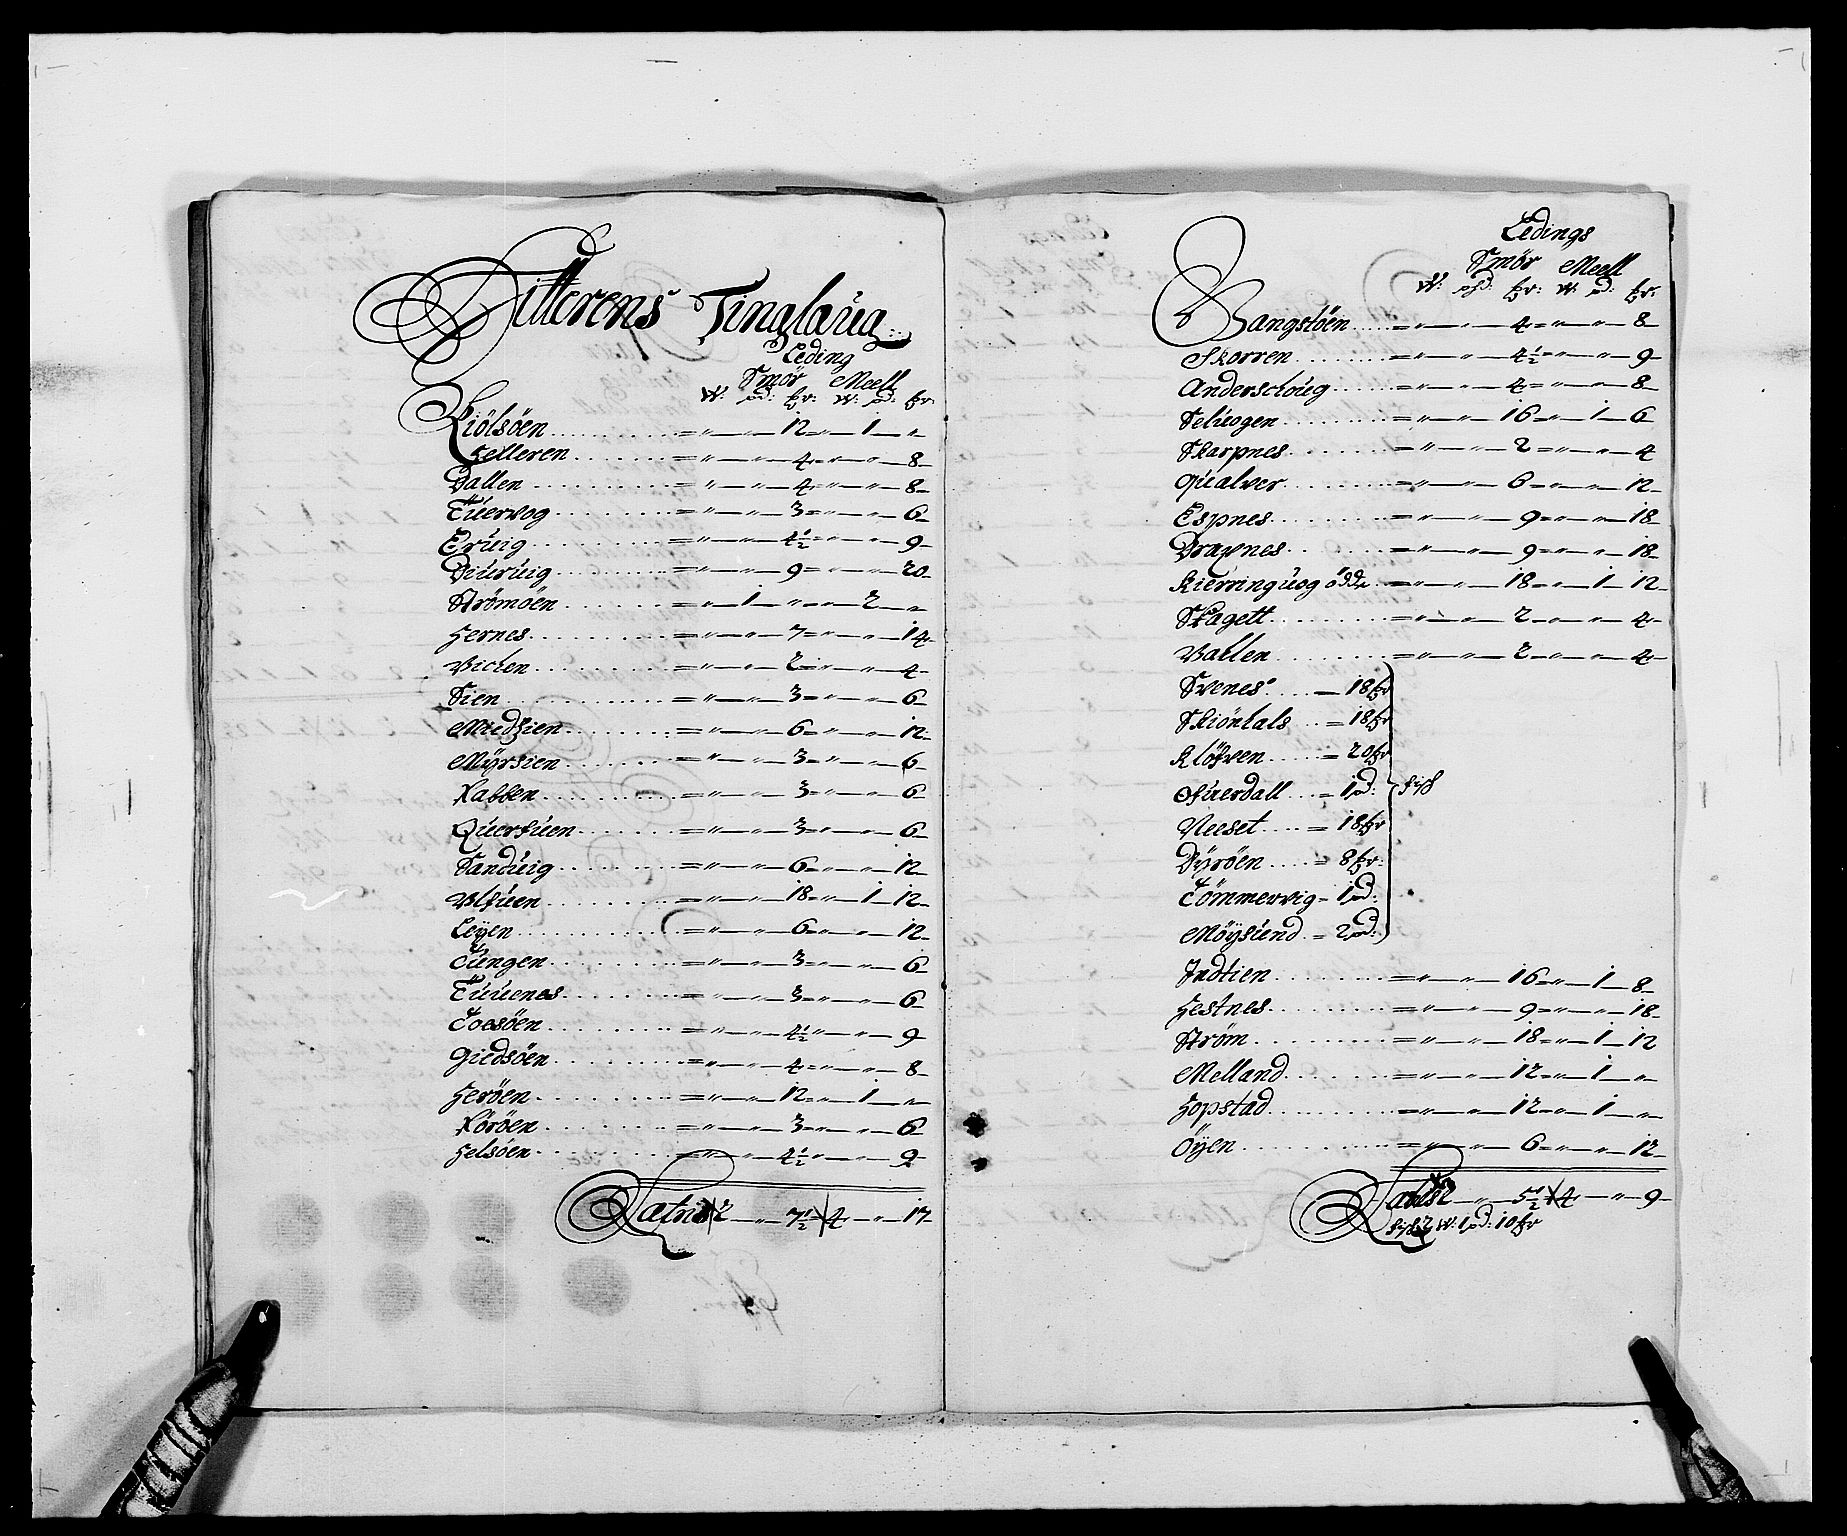 Hitterens Tinglaug
Leding
Smör Meell
W: pd: hr: W: pd: hr:
Kiölsöen = " — " — 12 = " — 1 — "
Helleren = " — " — 4 = " — " — 8
Dallen = " — " — 4 = " — " — 8
Tuervog = " — " — 3 = " — " — 6
Eruig = " — " — 4½ = " — " — 9
Diuruig = " — " — 9 = " — " — 20
Strömöen = " — 1 — " = " — 2 — "
Hernes = " — " — 7 = " — " — 14
Vichen = " — " — 2 = " — " — 4
Sien = " — " — 3 = " — " — 6
Miedsien = " — " — 6 = " — " — 12
Myrsien = " — " — 3 = " — " — 6
Nabben = " — " — 3 = " — " — 6
Querfuen = " — " — 3 = " — " — 6
Sanduig = " — " — 6 = " — " — 12
Ulfuen = " — " — 18 = " — 1 — 12
Leyen = " — " — 6 = " — " — 12
Tungen = " — " — 3 = " — " — 6
Tuuenes = " — " — 3 = " — " — 6
Toesöen = " — " — 4½ = " — " — 9
Giedsöen = " — " — 4 = " — " — 8
Heröen = " — " — 12 = " — 1 — "
Noröen = " — " — 3 = " — " — 6
Helsöen = " — " — 4½ = " — " — 9
Latus 2 — " — 7½ 4 — " — 17
Ledings
Smör Meell
W: pd: hr: W: pd: hr:
Bangstöen = " — " — 4 = " — " — 8
Skorren = " — " — 4½ = " — " — 9
Anderschoug = " — " — 4 = " — " — 8
Seluogen = " — " — 16 = " — 1 — 6
Skarpnes = " — " — 2 = " — " — 4
Qualver = " — " — 6 = " — " — 12
Espnes = " — " — 9 = " — " — 18
Dragnes = " — " — 9 = " — " — 18
Kierringuog ödde = " — " — 18 = " — 1 — 12
Skagett = " — " — 2 = " — " — 4
Vallen = " — " — 2 = " — " — 4
Svenes — 18 hr
Skiönhals = 18 hr
Klöfven = 20 hr
Ofuerdall = 1 pd: fisk
Neeset = 18 hr
Dyröen = 8 hr:
Tömmervig = 1 pd:
Möysund = 2 pd:
Indtien = " — " — 16 = " — 1 — 8
Hestnes = " — " — 9 = " — " — 18
Ström = " — " — 18 = " — 1 — 12
Melland = " — " — 12 = " — 1 — "
Hopstad = " — " — 12 = " — 1 — "
Öyen = " — " — 6 = " — " — 12
Latus 2 — " — 5½ 4 — " — 9
fisk 2 W: 1 pd: 10 hr